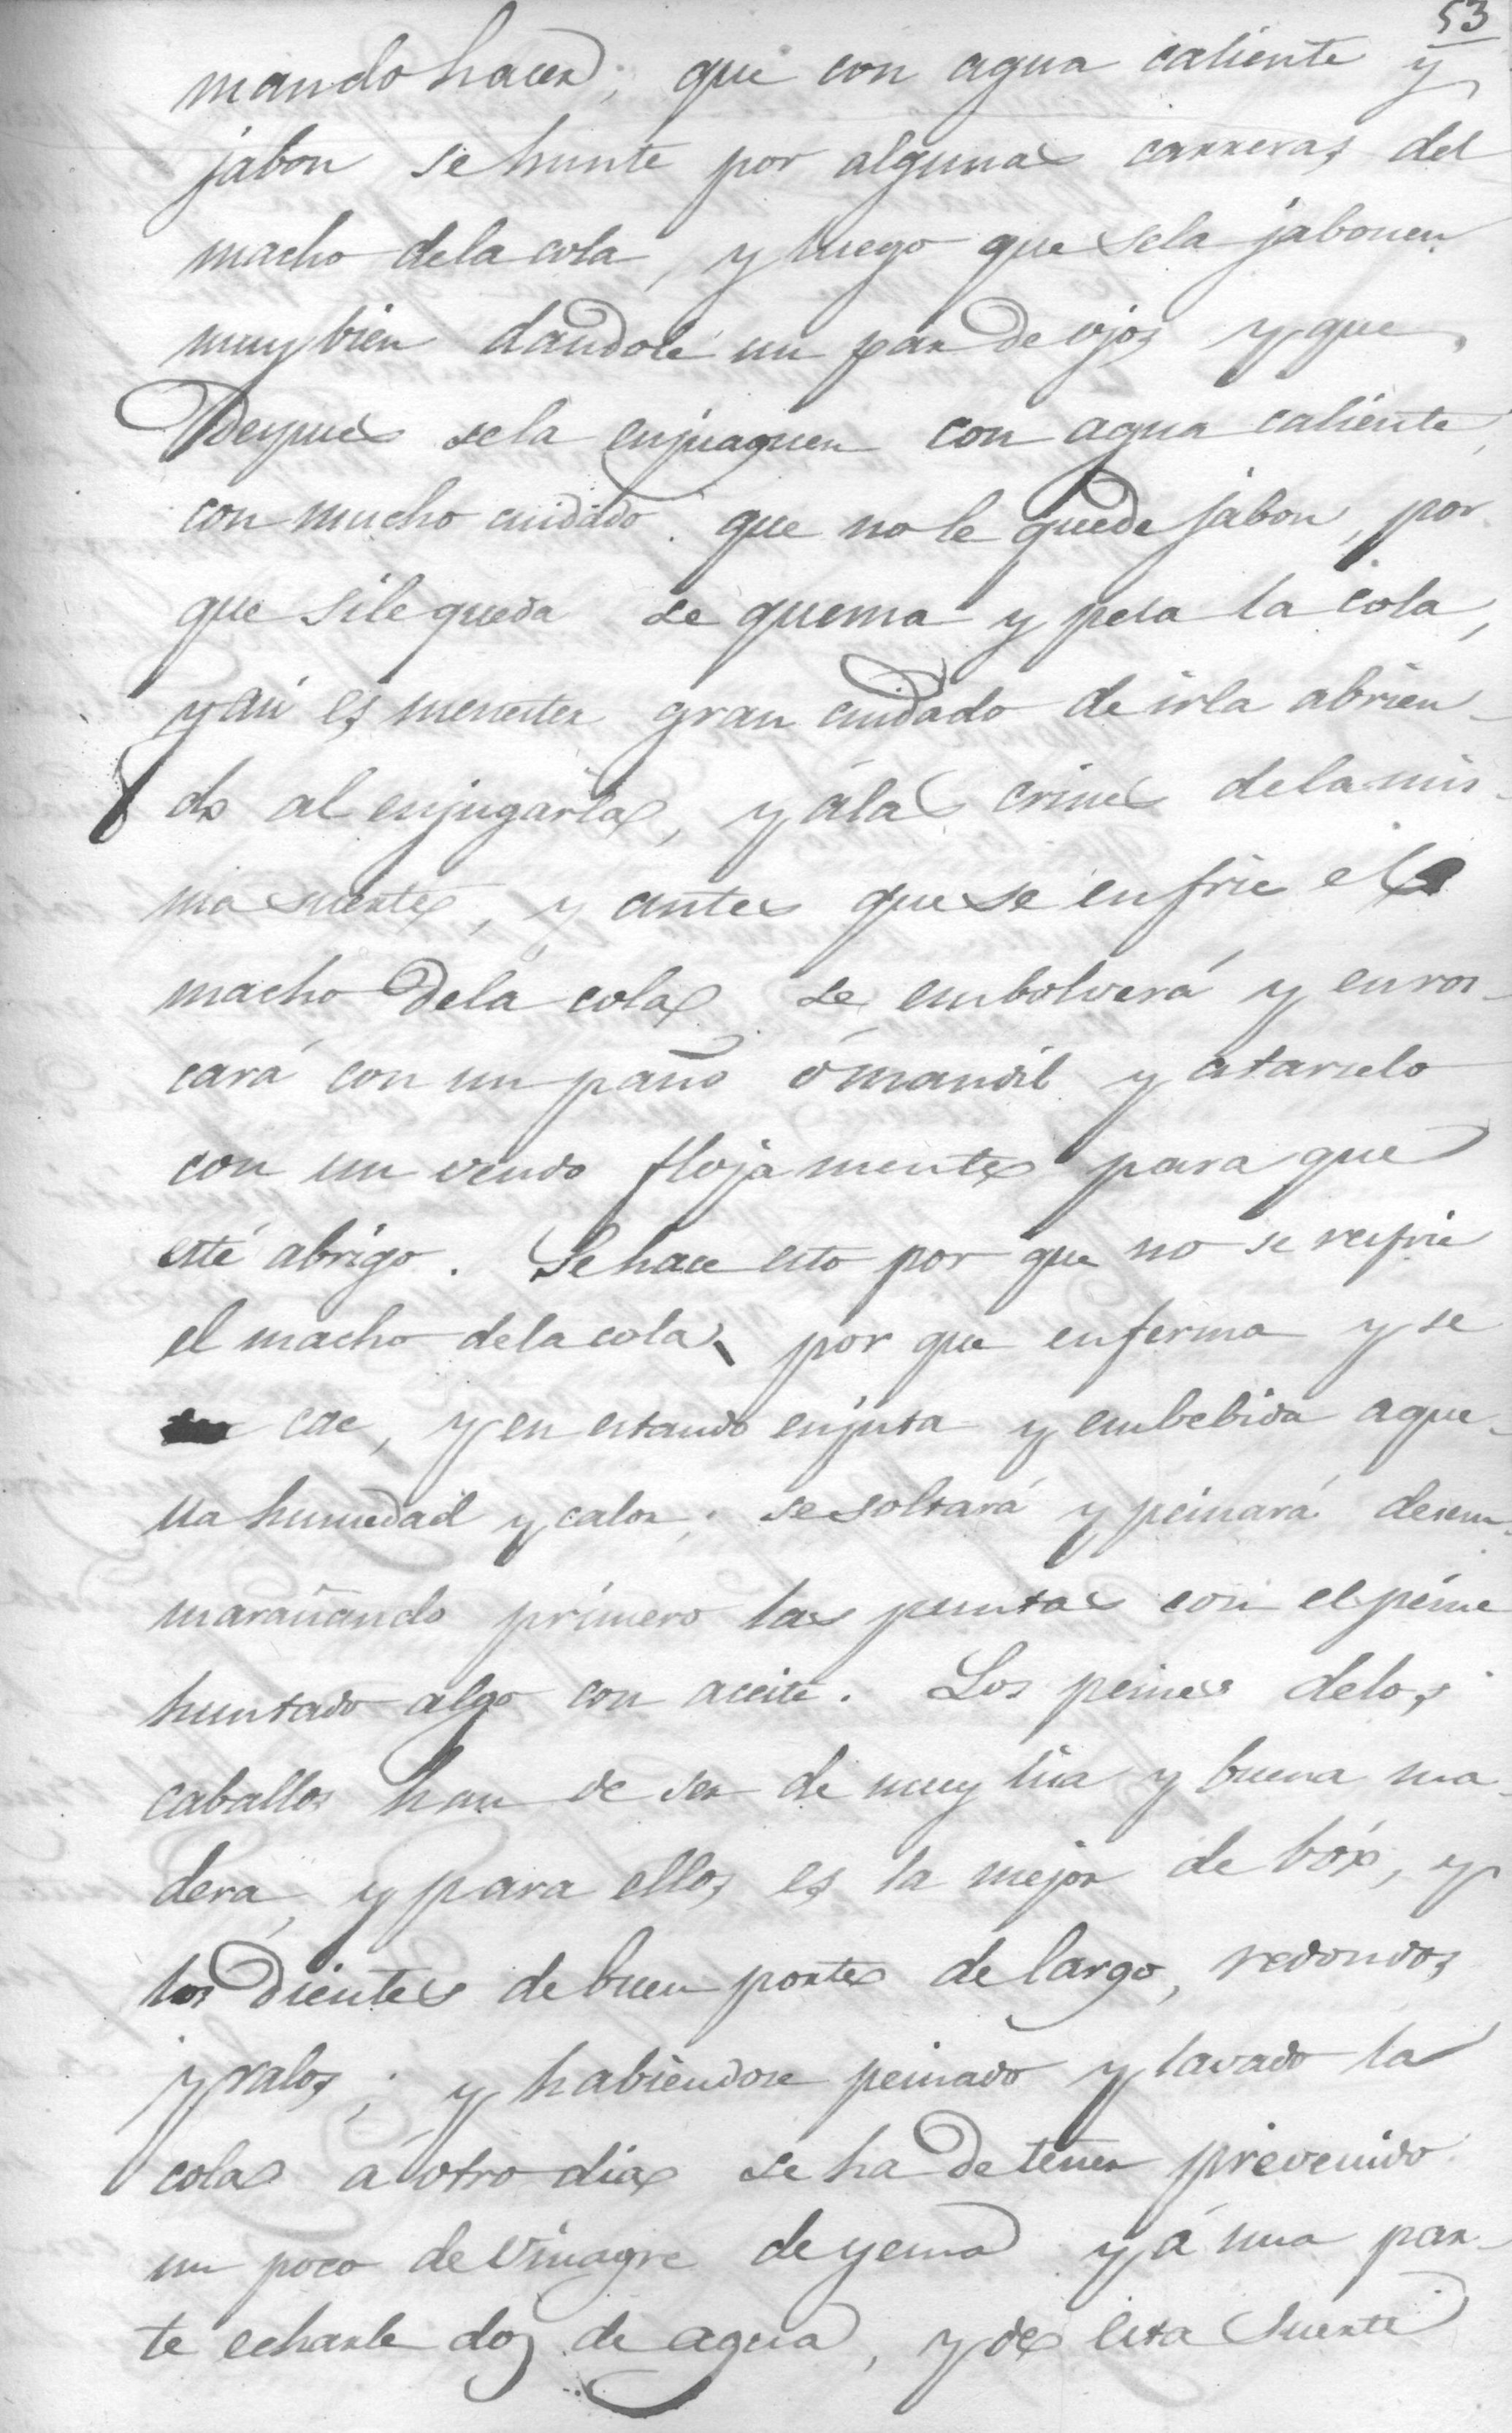 53
mando hacer; que con agua caliente y
jabon se hunte por algunas carreras del
macho dela cola, y luego que sela jabonen
muy bien dandole un par de ojos y que
despues sela enjuaguen con agua caliente,
con mucho cuidado que no le quede jabon, por
que sile queda se quema y pela la cola,
y asi es menester gran cuidado de irla abrien-
do al enjugarla, y álas crines dela mis-
ma suerte, y antes que se enfrie el
macho dela cola se embolverá y enros-
cará con un paño ó mandil y atarselo
con un vendo flojamente para que
esté abrigo. Se hace esto por que no se resfrie
el macho dela cola, por que enferma y se
cae, y en estando enjuta y embebida aque-
lla humedad y calor; se soltará y peinará desem-
marañando primero las puntas con el peine
huntado algo con aceite. Los peines delos
caballos han de ser de muy lisa y buena ma-
dera, y para ellos es la mejor de box, y
los dientes de buen porte de largo, redondos
y ralos; y habiendose peinado y lavado la
cola á otro dia se ha de tener prevenido
un poco de vinagre de yema y á una par-
te echarle dos de agua, y de esta suerte